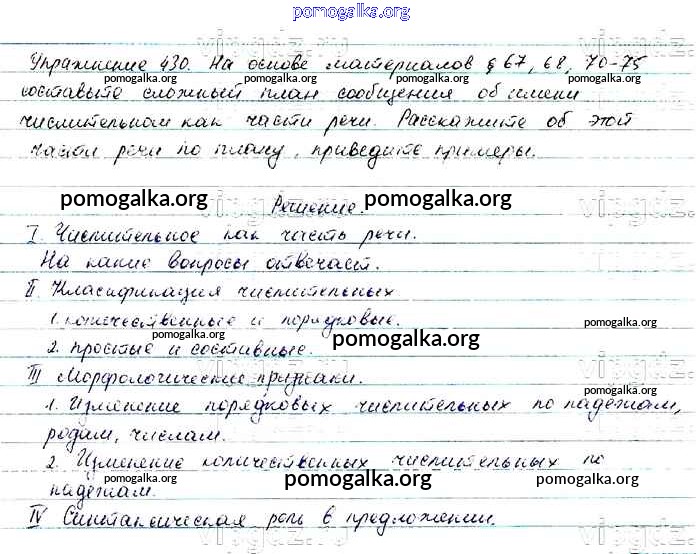 pomogalka.org
Упражнение 430. На основе материалов § 67, 68, 70-75
pomogalka.org pomogalka.org pomogalka.org
составьте сложный план сообщения об имени
числительном как части речи. Расскажите об этой
pomogalka.org pomogalka.org pomogalka.org
части речи по плану, приведите примеры.
pomogalka.org pomogalka.org pomogalka.org
Решение.
I. Числительное как часть речи.
На какие вопросы отвечает.
pomogalka.org pomogalka.org pomogalka.org
II. Классификация числительных
1. количественные и порядковые.
pomogalka.org pomogalka.org pomogalka.org
2. простые и составные.
III Морфологические признаки.
pomogalka.org pomogalka.org pomogalka.org
1. Изменение порядковых числительных по падежам,
родам, числам.
2. Изменение количественных числительных по
pomogalka.org pomogalka.org pomogalka.org
падежам.
IV Синтаксическая роль в предложении.